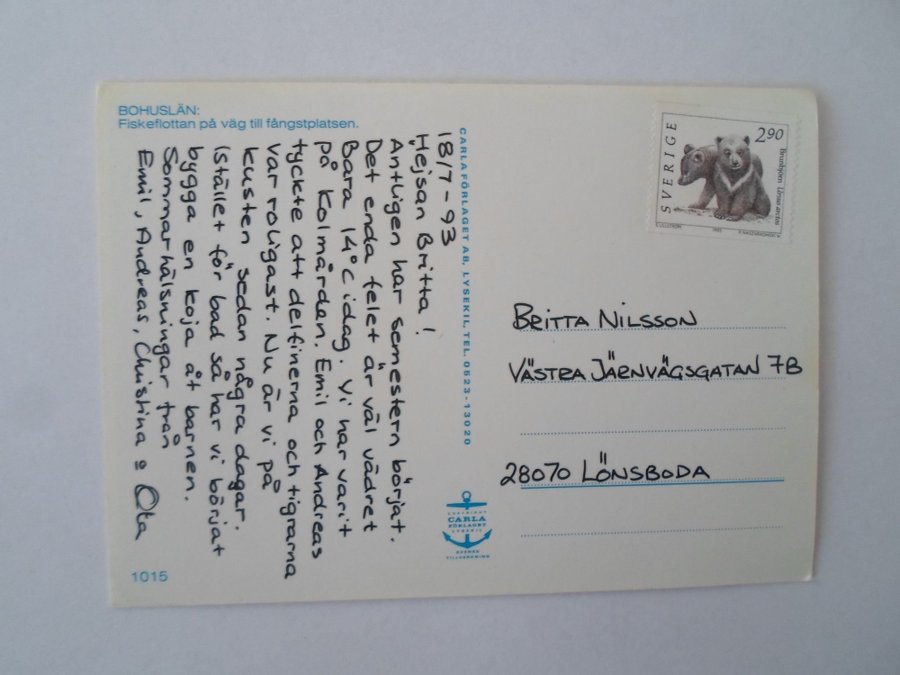 BOHUSLÄN:
Fiskeflottan på väg till fångstplatsen.
18/7-93
Hejsan Britta!
Äntligen har semestern börjat.
Det enda felet är väl vädret
Bara 14°C idag. Vi har varit
på Kolmården. Emil och Andreas
tyckte att delfinerna och tigrarna
var roligast. Nu är vi på
kusten sedan några dagar.
Istället för bad så har vi börjat
bygga en koja åt barnen.
Sommarhälsningar från
Emil, Andreas, Christina o
1015
CARLA FÖRLAGET AB, LYSEKIL, TEL. 0523-13020
COPYRIGHT
CARLA
FÖRLAGET
LYSEKIL
SVENSK
TILLVERKNING
SVERIGE
290
Brunbjörn Ursus arctos
BRITTA NILSSON
VÄSTRA JÄRNVÄGSGATAN 7B
28070 LÖNSBODA